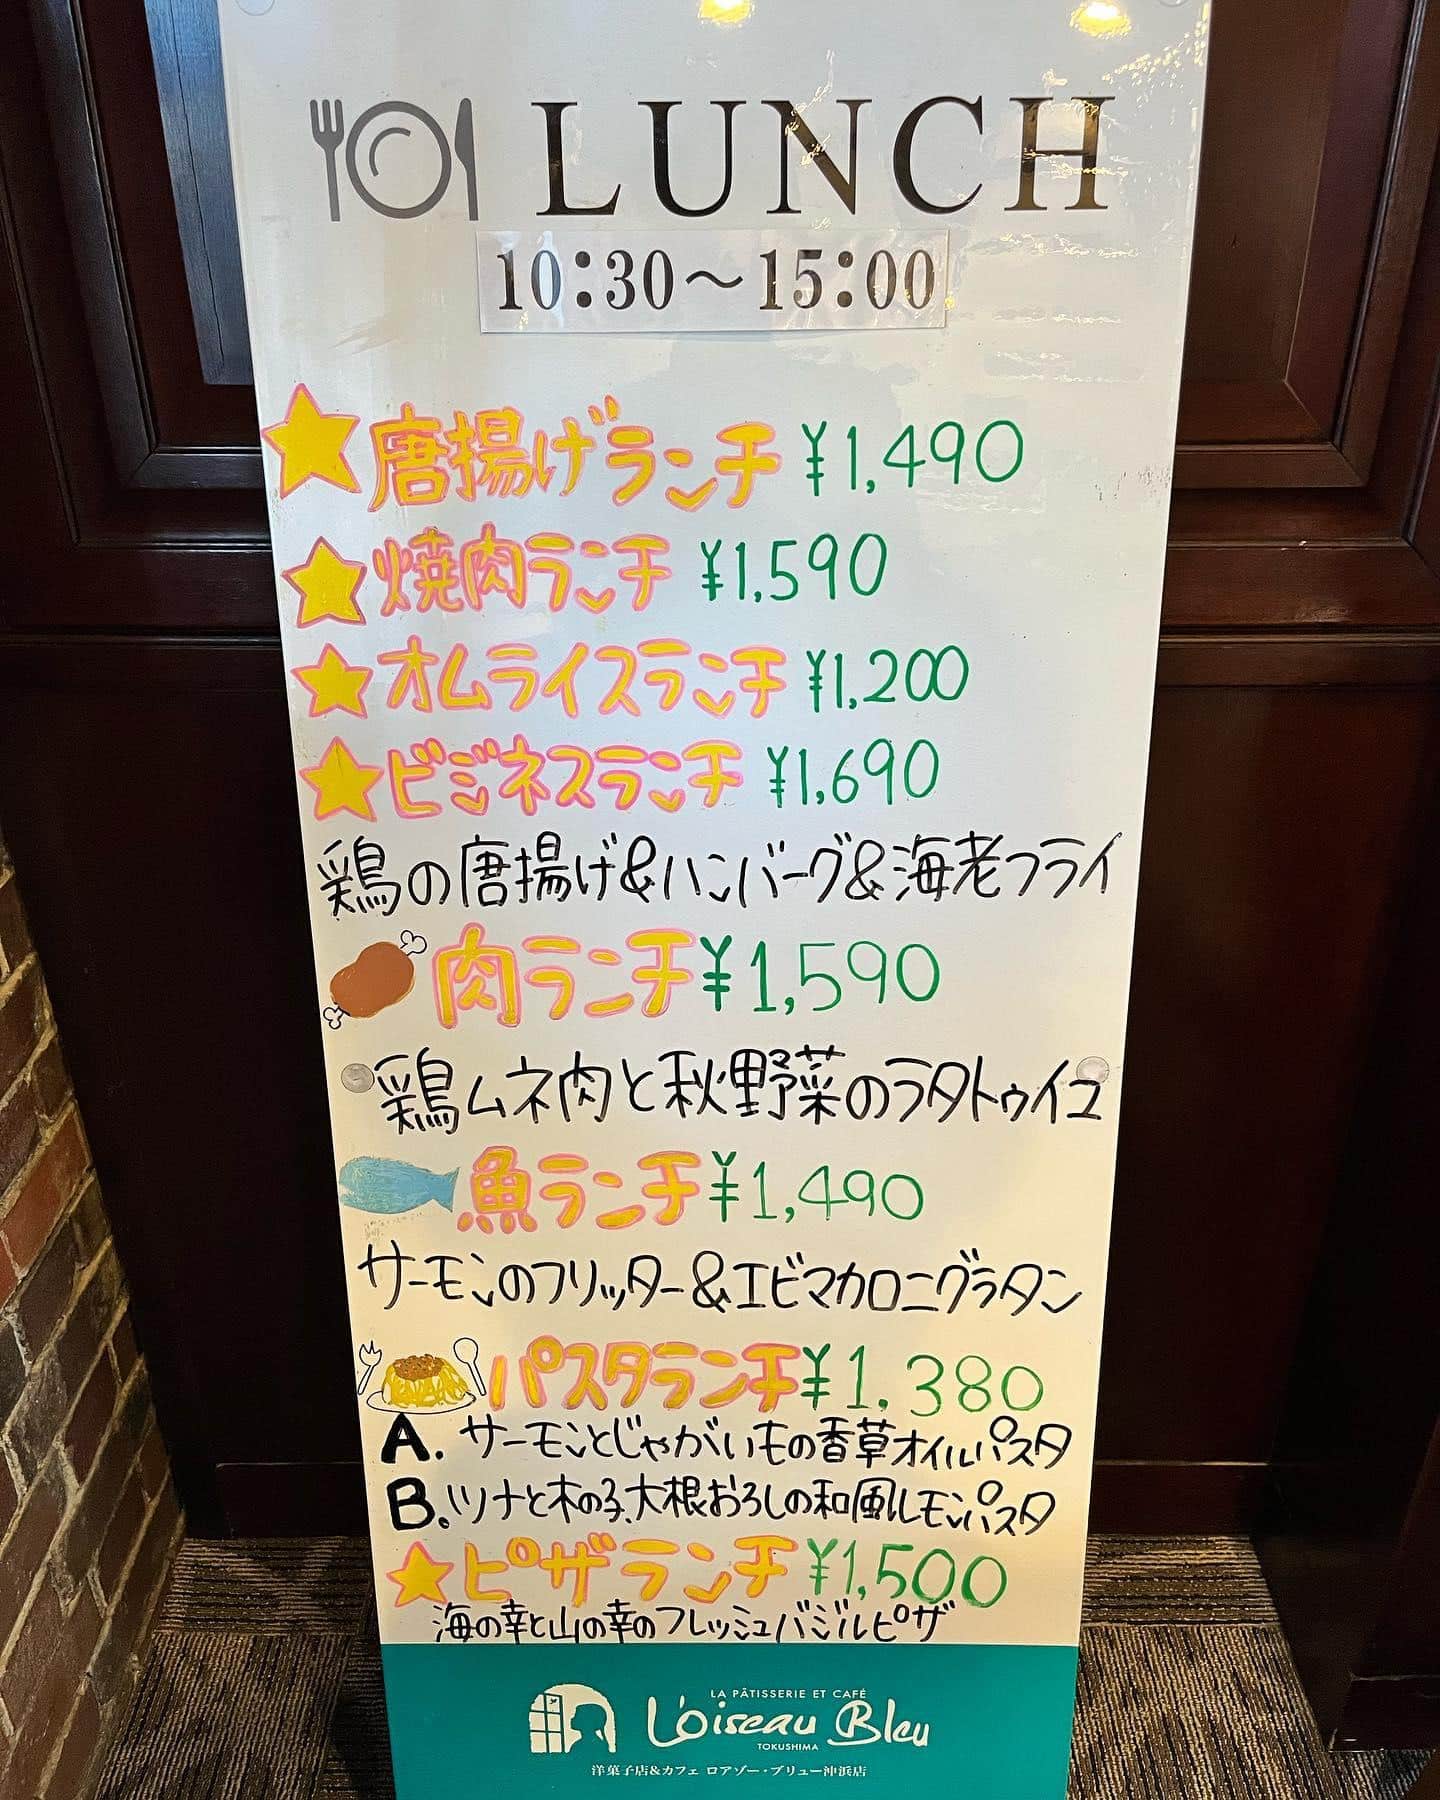 LUNCH
10:30〜15:00
唐揚げランチ ¥1,490
焼肉ランチ ¥1,590
オムライスランチ ¥1,200
ビジネスランチ ¥1,690
鶏の唐揚げ&ハンバーグ&海老フライ
肉ランチ ¥1,590
鶏ムネ肉と秋野菜のラタトゥイユ
魚ランチ ¥1,490
サーモンのフリッター&エビマカロニグラタン
パスタランチ ¥1.380
A. サーモンとじゃがいもの香草オイルパスタ
B. ツナと木の子、大根おろしの和風レモンパスタ
ピザランチ ¥1,500
海の幸と山の幸のフレッシュバジルピザ
LA PÂTISSERIE ET CAFÉ
L'oiseau Bleu
TOKUSHIMA
洋菓子店&カフェ ロアゾー・ブリュー沖浜店